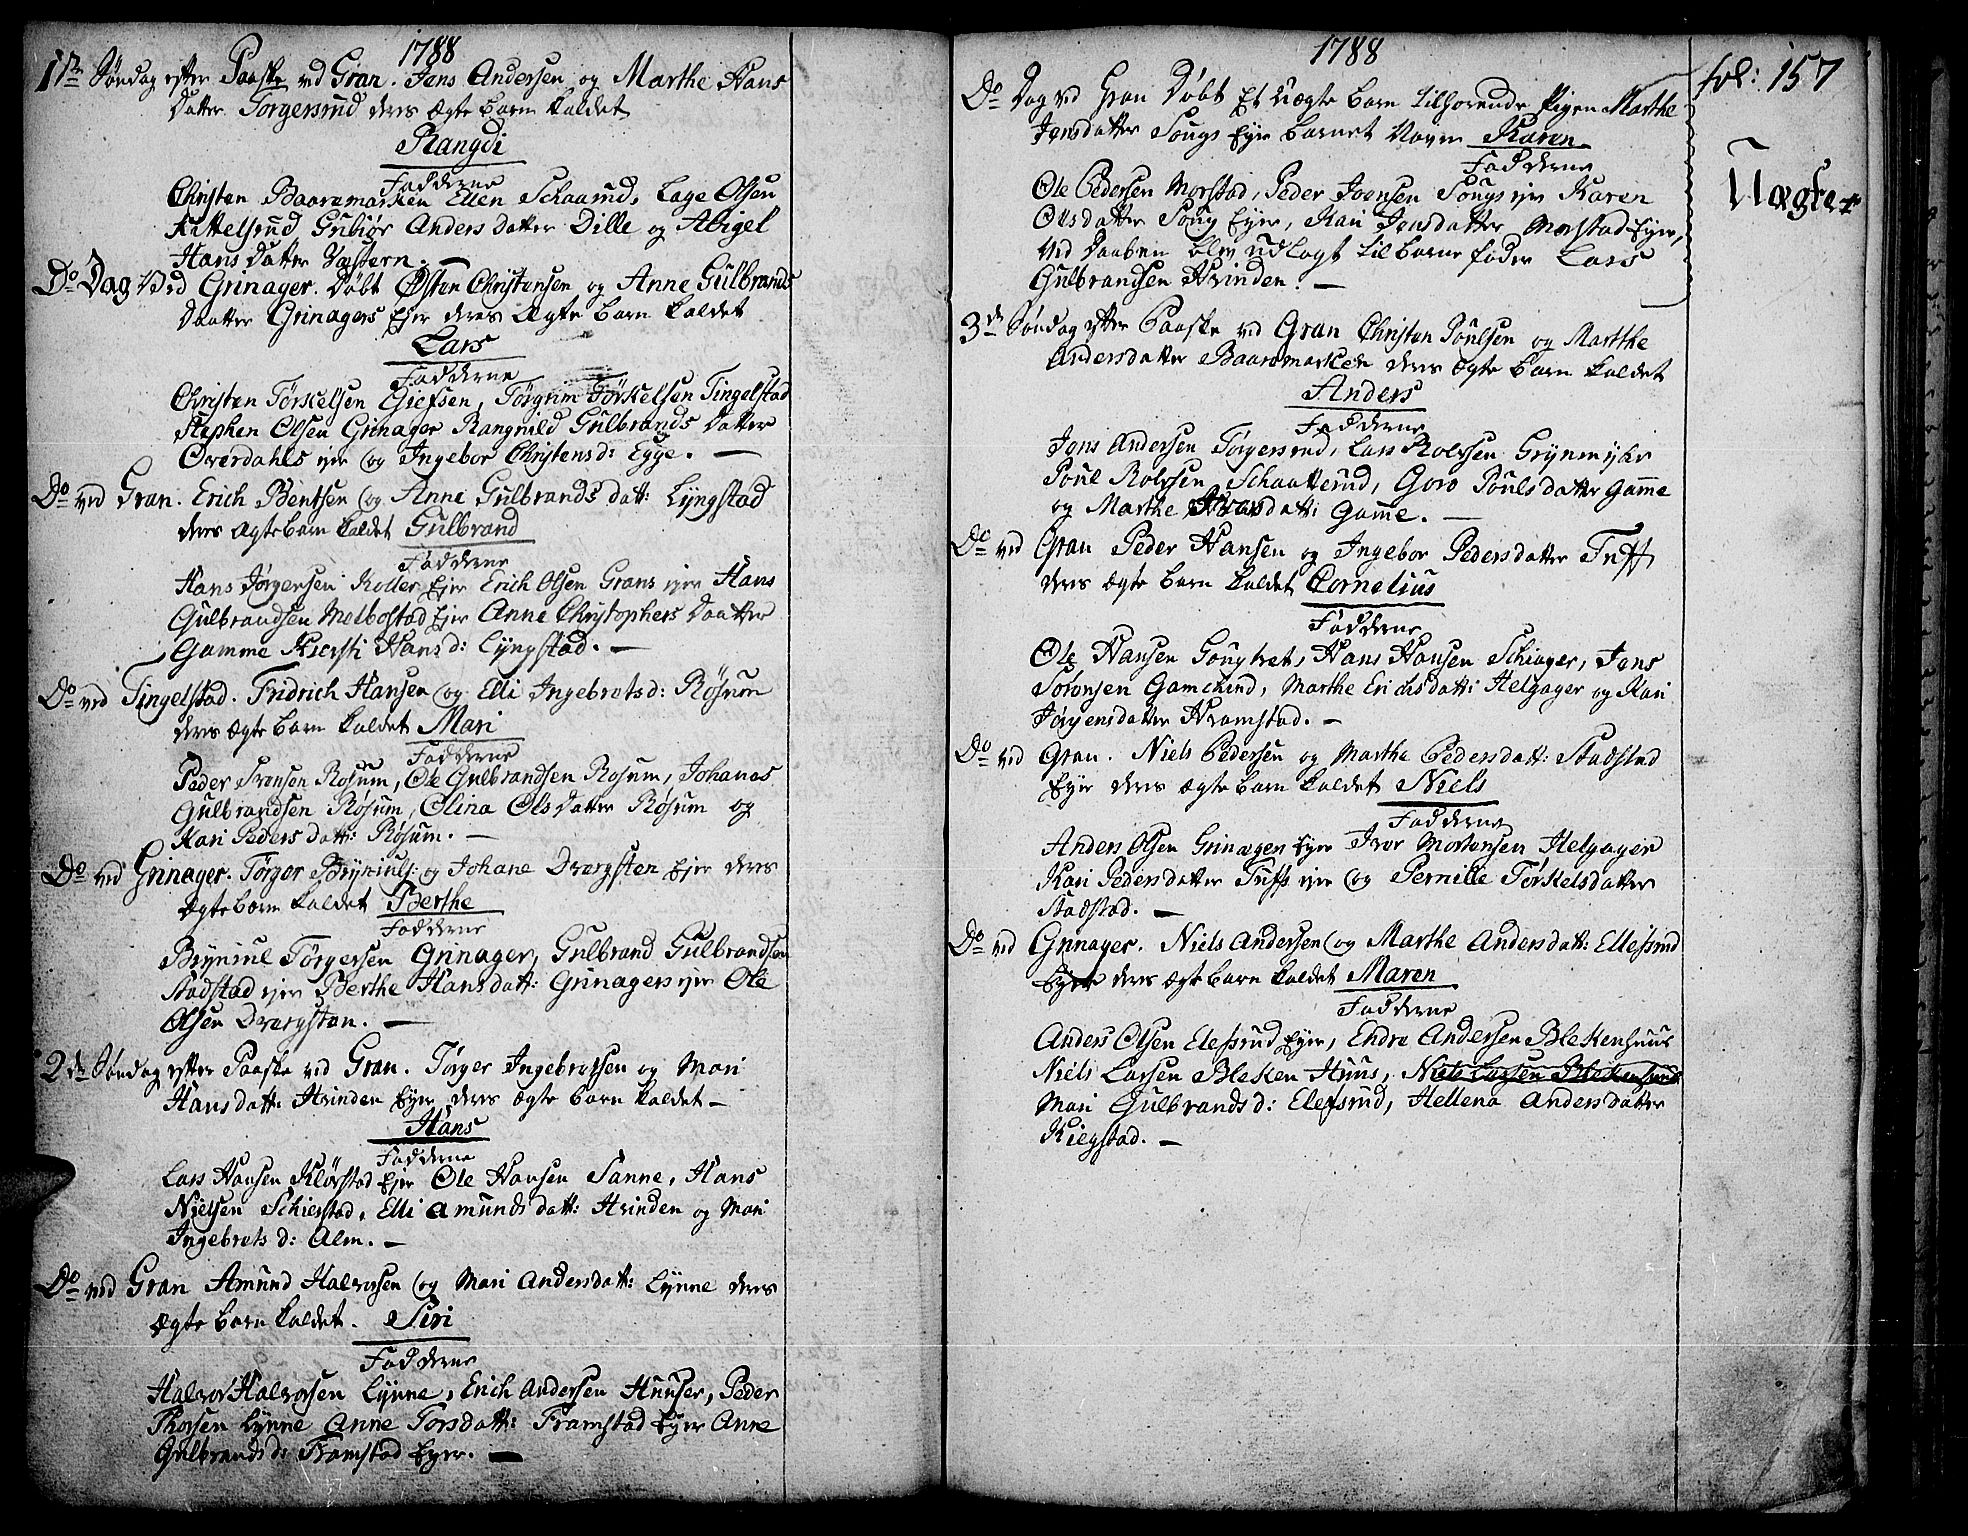 1788
1ste Søndag efter Paaske ved Gran. Jens Andersen og Marthe Hans
Datter Torgersrud deres Ægte barn kaldet
Rangdi
Fadderne
Christen Baaremarken Ellen Schaarud, Lage Olsen
Kittelsrud Gubiør Anders datter Dille og Abigel
Hans Datter Væstern. —
Do Dag Ved Grinager. Døbt Østen Christensen og Anne Gulbrands
Daatter Grinagers Ejer deres Ægte barn kaldet
Lars
Fadderne
Christen Tørkelsen Giefsen, Tørgrim Tørkelsen Tingelstad
Stephen Olsen Grinager Rangnild Gulbrands Datter
Overdahls ejer og Ingebor Christensd: Egge. —
Do ved Gran. Erich Bentsen og Anne Gulbrands datt: Lyngstad
deres Ægte barn kaldet Gulbrand
Fadderne
Hans Jørgensen Koller Ejer Erich Olsen Grans ejer Hans
Gulbrandsen Melbostad Ejer Anne Christophers Daatter
Gamme Kiersti Hansd: Lyngstad. —
Do ved Tingelstad. Fridrich Hansen og Elli Ingebretsd: Røsum
deres Ægte barn kaldet Mari
Fadderne
Peder Svensen Rosum, Ole Gulbrandsen Rosum, Johanes
Gulbrandsen Røsum, Olina Olsdatter Røsum og
Kari Peders datt: Røsum. —
Do ved Grinager. Tørger Bryniuls: og Johane Drægsten Ejer deres
Ægte barn kaldet Berthe
Fadderne
Bryniul Tørgersen Grinager, Gulbrand Gulbrandsen
Stadstad ejer Berthe Hansdatt: Grinagers ejer Ole
Olsen Drægsten. —
2den Søndag efter Paaske ved Gran. Tørger Ingebretsen og Mari
Hansdatt: Hvinden Ejer deres Ægte barn kaldet —
Hans
Fadderne
Lars Hansen Kløvstad Ejer Ole Hansen Sanne, Hans
Nielsen Schiestad, Elli Amunds datt: Hvinden og Mari
Ingebrets d: Alm. —
Do ved Gran Amund Halvorsen og Mari Andersdatt: Lynne deres
Ægte barn kaldet. Siri
Fadderne
Halvor Halvorsen Lynne, Erich Andersen Huuser, Peder
Thorsen Lynne Anne Torsdatt: Framstad Ejer Anne
Gulbrandsd: Framstad Ejer. —
1788
fol: 157
Do Dag ved Gran Døbt Et Uægte barn tilhørende Pigen Marthe
Jensdatter Sougs Ejer barnet Navn Karen
Uægte
Fadderne
Ole Pedersen Morstad, Peder Joensen Sougs ejer Karen
Olsdatter Soug Ejer, Kari Jensdatter Morstad Ejer,
Ved Daaben blev udlagt til barne fader Lars
Gulbrandsen Hvinden. —
3die Søndag efter Paaske ved Gran Christen Poulsen og Marthe
Andersdatter Baaremarken deres Ægte barn kaldet
Anders
Fadderne
Jens Andersen Tørgersrud, Lars Rolvsen
Poul Rolvsen Schaatterud, Goro Poulsdatter Gamme
og Marthe datt: Gamme. —
Do ved Gran Peder Hansen og Ingebor Pedersdatter Tuff
deres Ægte barn kaldet Cornelius
Fadderne
Ole Hansen Hans Hansen Schiager, Jens
Sørensen Gamchind, Marthe Erichsdatt: Helgager og Kari
Jørgensdatter Framstad. —
Do ved Gran. Niels Pedersen og Marthe Pedersdatt: Stadstad
Ejer deres Ægte barn kaldet Niels
Fadderne
Anders Olsen Grinagen Ejer Iver Mortensen Helgager
Kari Pedersdatter Tufts ejer og Pernille Tørkelsdatter
Stadstad. —
Do ved Grinager. Niels Andersen og Marthe Andersdatt: Ellefsrud
Ejer deres Ægte barn kaldet Maren
Fadderne
Anders Olsen Elefsrud Ejer, Endre Andersen Blekenhuus
Niels Larsen Bleken Huus, Niels Larsen Blekenhuus
Mari Gulbrandsd: Elefsrud, Hellena Andersdatter
Kiegstad. —